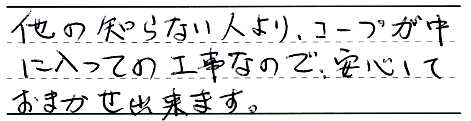 他の知らない人より、コープが中
に入っての工事なので、安心して
おまかせ出来ます。